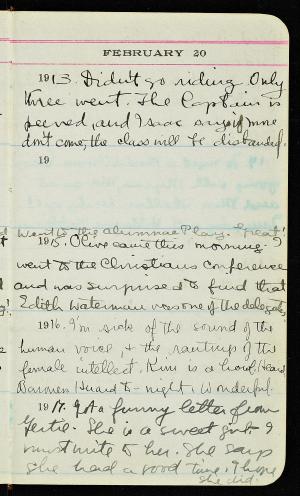 FEBRUARY 20
1913. Didn't go riding. Only
three went. The Captain is
peeved, and Isaac says if more
don't come, the class will be disbanded.
19
Went to the alumnae Play. Great!
1915. Olive came this morning. I
went to the Christians Conference
and was surprised to find that
Edith Waterman was one of the delegates.
1916. I'm sick of the sound of the
human voice, + the rantings of the
female intellect. Kim is a hound. Heard
Baroness Huard to-night. Wonderful.
1917. Got a funny letter from
Gertie. She is a sweet girl. I
must write to her. She says
she had a good time. I hope
she did.